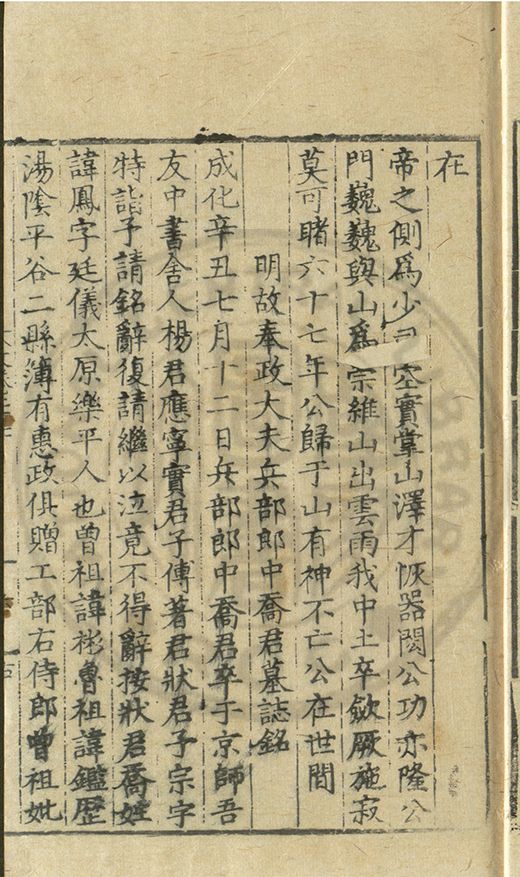 在
帝之側爲少司空實掌山澤才恢器閎公功亦隆公
門巍巍與山爲宗維山出雲雨我中土卒斂厥施寂
莫可睹六十七年公歸于山有神不亡公在世間
明故奉政大夫兵部郎中喬君墓誌銘
成化辛丑七月十二日兵部郎中喬君卒于京師吾
友中書舍人楊君應寧實君子傅著君狀君子宗字
特詣予請銘辭復請繼以泣竟不得辭按狀君喬姓
諱鳳字廷儀太原樂平人也曾祖諱彬魯祖諱鑑歷
湯陰平谷二縣簿有惠政俱贈工部右侍郎曾祖妣